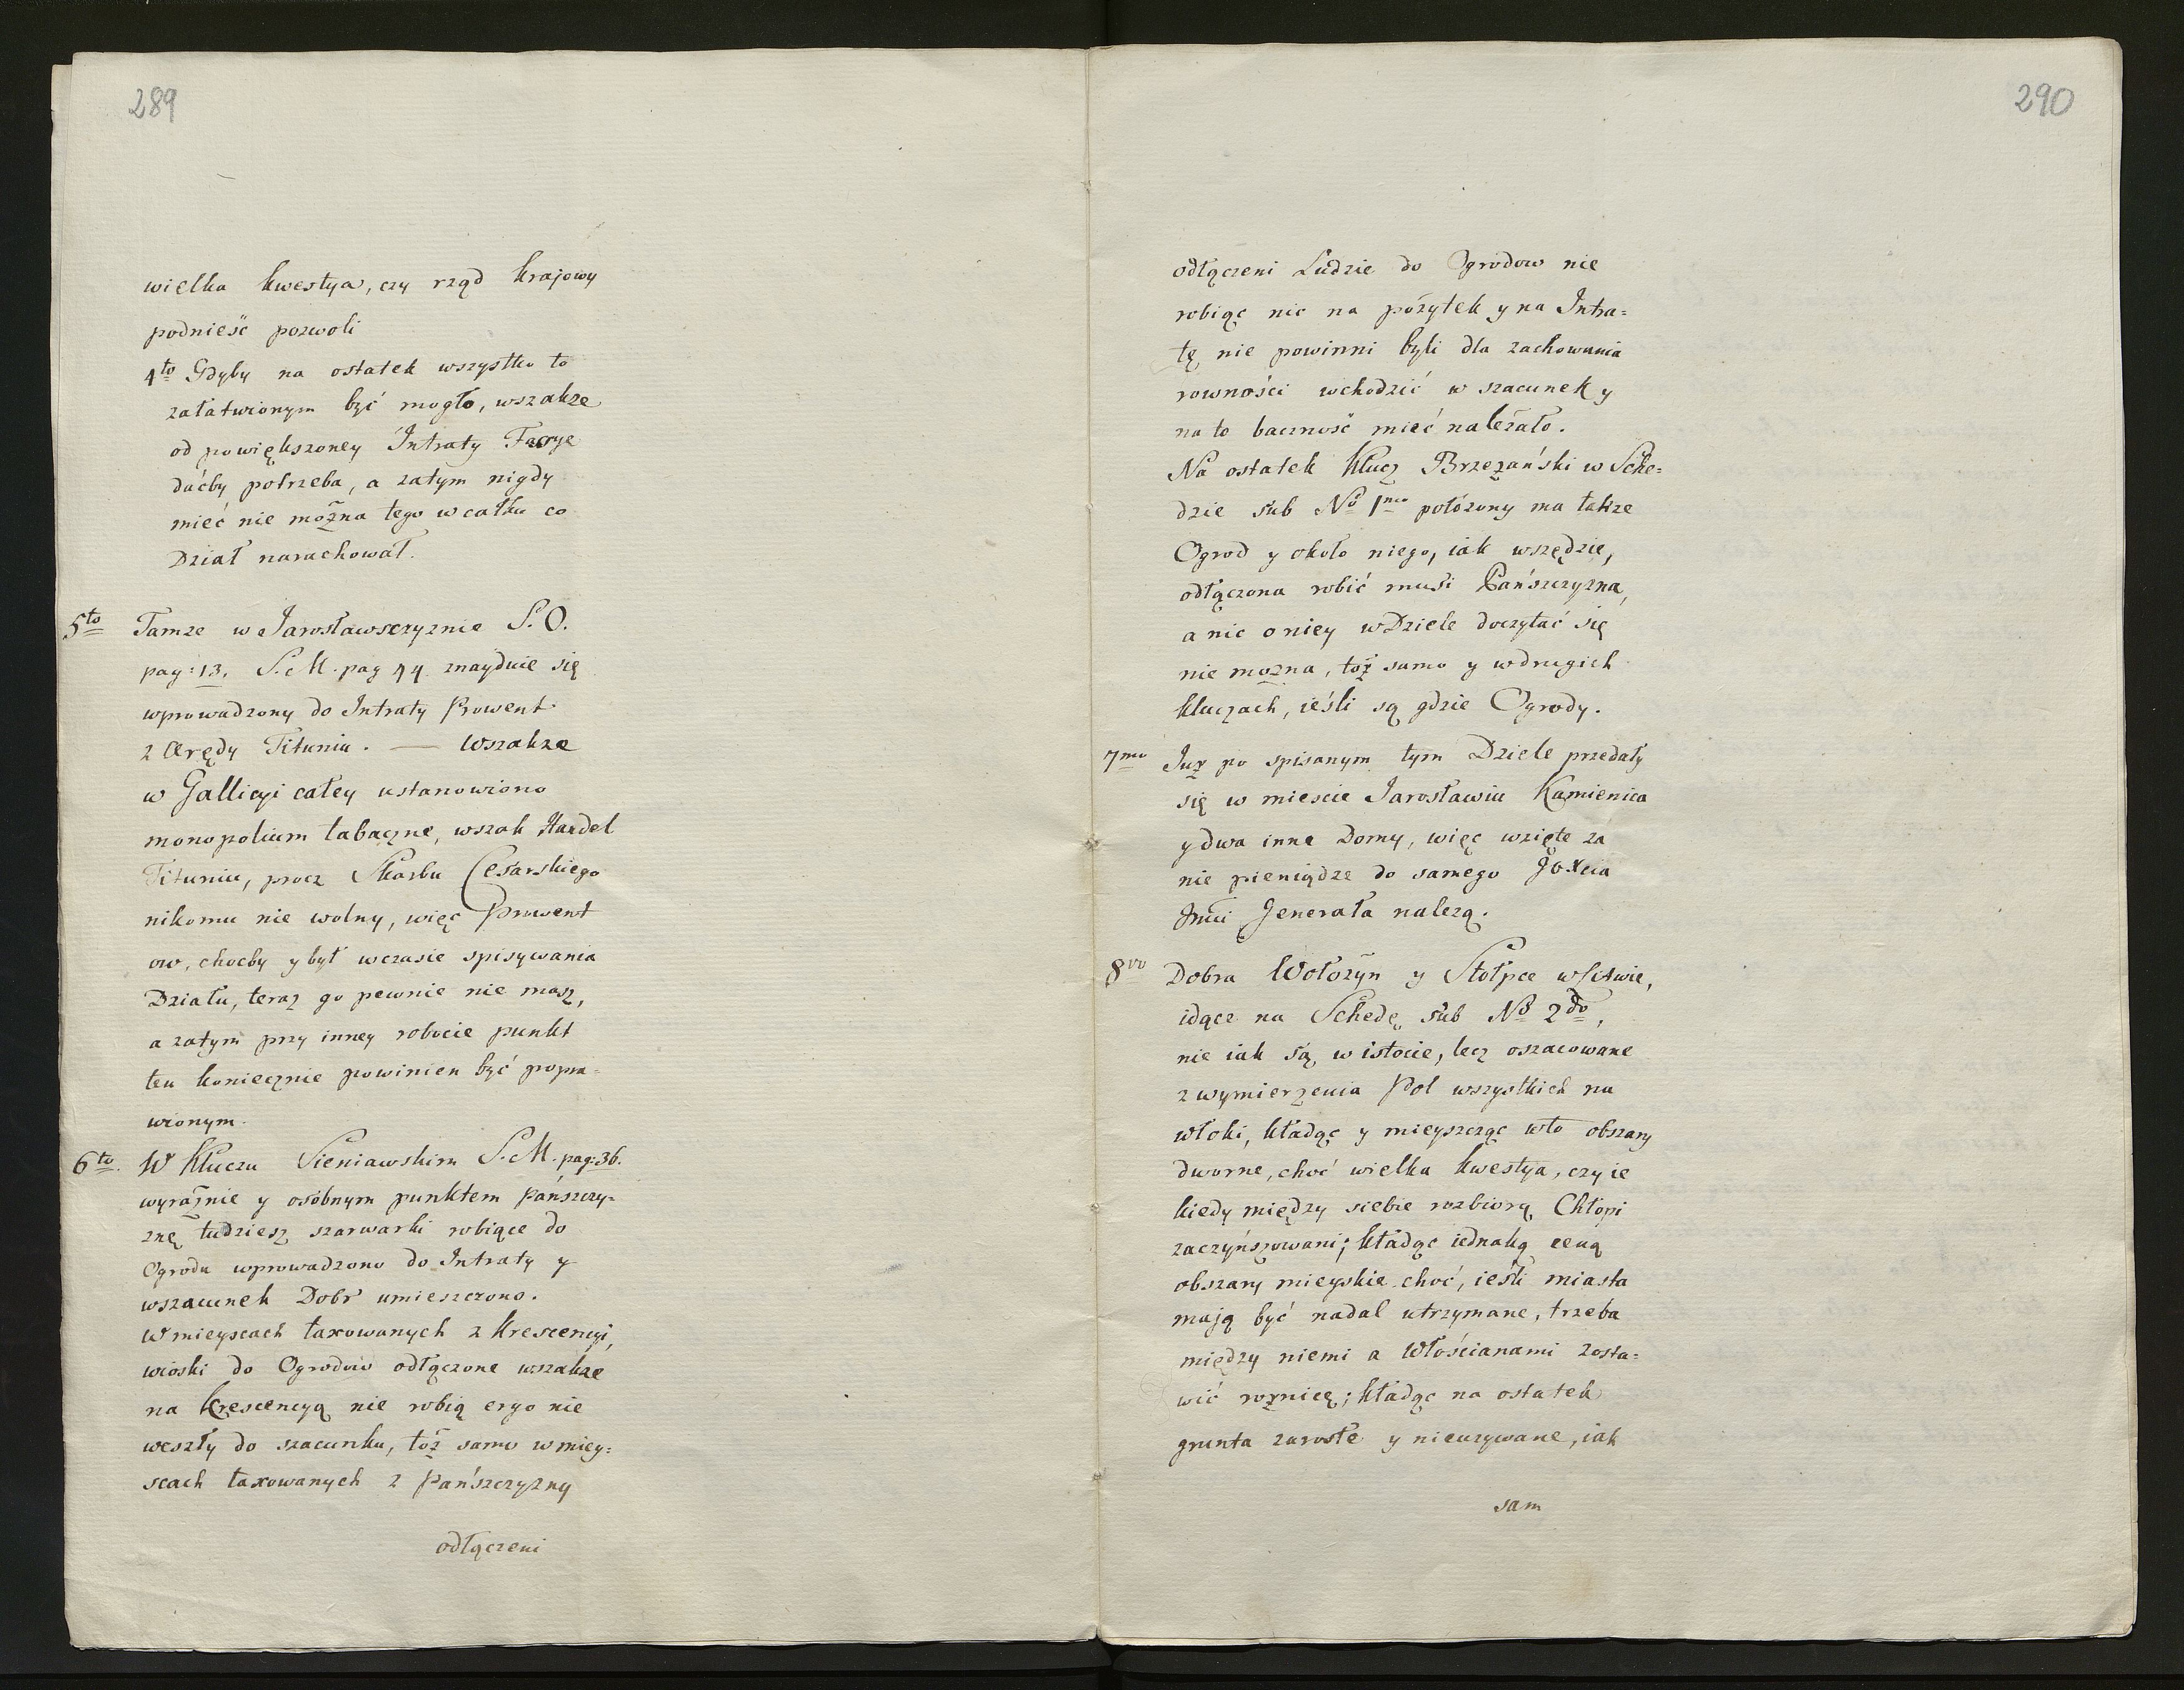 289
wielka kwestya, czy rząd krajowy
podnieść pozwoli
4to Gdyby na ostatek wszystko to
załatwionym być mogło, wszakze
od powiększoney Intraty Fassye
daćby potrzeba, a zatym nigdy
mieć nie można tego w całku co
Dział narachował.
5to Tamze w Jarosławszczyznie S. O.
pag: 13. S. M. pag 44 znayduie się
wprowadzony do Intraty Prowent
z Arędy Tituniu. — Wszakze
w Gallicyi całey ustanowiono
monopolium tabaczne, wszak Handel
Tituniu, procz Skarbu Cesarskiego
nikomu nie wolny, więc Prowent
ow, choćby y był w czasie spisywania
Działu, teraz go pewnie nie masz,
a zatym przy inney robocie punkt
ten koniecznie powinien być popra=
wionym.
6to. W Kluczu Sieniawskim S. M. pag: 36.
wyraźnie y osóbnym punktem pańszczy=
znę tudziesz szarwarki robiące do
Ogrodu wprowadzono do Intraty y
w szacunek Dobr umieszczono.
W mieyscach taxowanych z Krescencyi,
wioski do Ogrodow odłączone wszakze
na Krescencyą nie robią ergo nie
weszły do szacunku, toż samo w miey=
scach taxowanych z Pańszczyzny
odłączeni
290
odłączeni Ludzie do Ogrodow nie
robiąc nic na pożytek y na Intra=
tę nie powinni byli dla zachowania
rowności wchodzić w szacunek y
na to baczność mieć należało.
Na ostatek Klucz Brzezański w Sche=
dzie sub No 1mo położony ma takze
Ogrod y około niego, iak wszędzie,
odłączona robić musi Pańszczyzna,
a nic o niey w Dziele doczytać się
nie mozna, toż samo y w drugich
kluczach, ieśli są gdzie Ogrody.
7mo Juz po spisanym tym Dziele przedały
się w mieście Jarosławiu Kamienica
y dwa inne Domy, więc wzięte za
nie pieniądze do samego JoXcia
Jmci Jenerała nalezą.
8vo Dobra Wołożyn y Stołpce w Litwie,
idące na Schedę sub No 2do,
nie iak są w istocie, lecz oszacowane
z wymierzenia Pol wszystkich na
włoki, kładąc y mieyszcząc w to obszary
dworne, choć wielka kwestya, czy ie
kiedy między siebie rozbiorą Chłopi
zaczynszowani; kładąc iednaką ceną
obszary mieyskie choć, ieśli miasta
mają być nadal utrzymane, trzeba
między niemi a Włościanami zosta=
wić roznicę; kładąc na ostatek
grunta zarosłe y nieuzywane, iak
sam